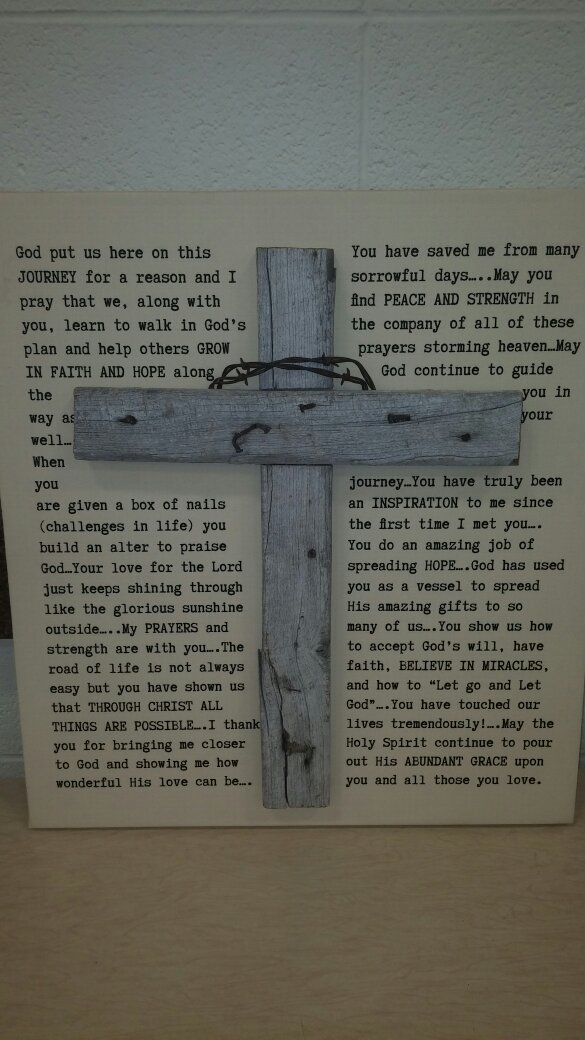 God put us here on this
JOURNEY for a reason and I
pray that we, along with
you, learn to walk in God's
plan and help others GROW
IN FAITH AND HOPE along
the
way as
well…
When
you
are given a box of nails
(challenges in life) you
build an alter to praise
God…Your love for the Lord
just keeps shining through
like the glorious sunshine
outside….My PRAYERS and
strength are with you….The
road of life is not always
easy but you have shown us
that THROUGH CHRIST ALL
THINGS ARE POSSIBLE….I thank
you for bringing me closer
to God and showing me how
wonderful His love can be….
You have saved me from many
sorrowful days…..May you
find PEACE AND STRENGTH in
the company of all of these
prayers storming heaven…May
God continue to guide
you in
your
journey…You have truly been
an INSPIRATION to me since
the first time I met you….
You do an amazing job of
spreading HOPE….God has used
you as a vessel to spread
His amazing gifts to so
many of us….You show us how
to accept God's will, have
faith, BELIEVE IN MIRACLES,
and how to "Let go and Let
God"….You have touched our
lives tremendously!….May the
Holy Spirit continue to pour
out His ABUNDANT GRACE upon
you and all those you love.